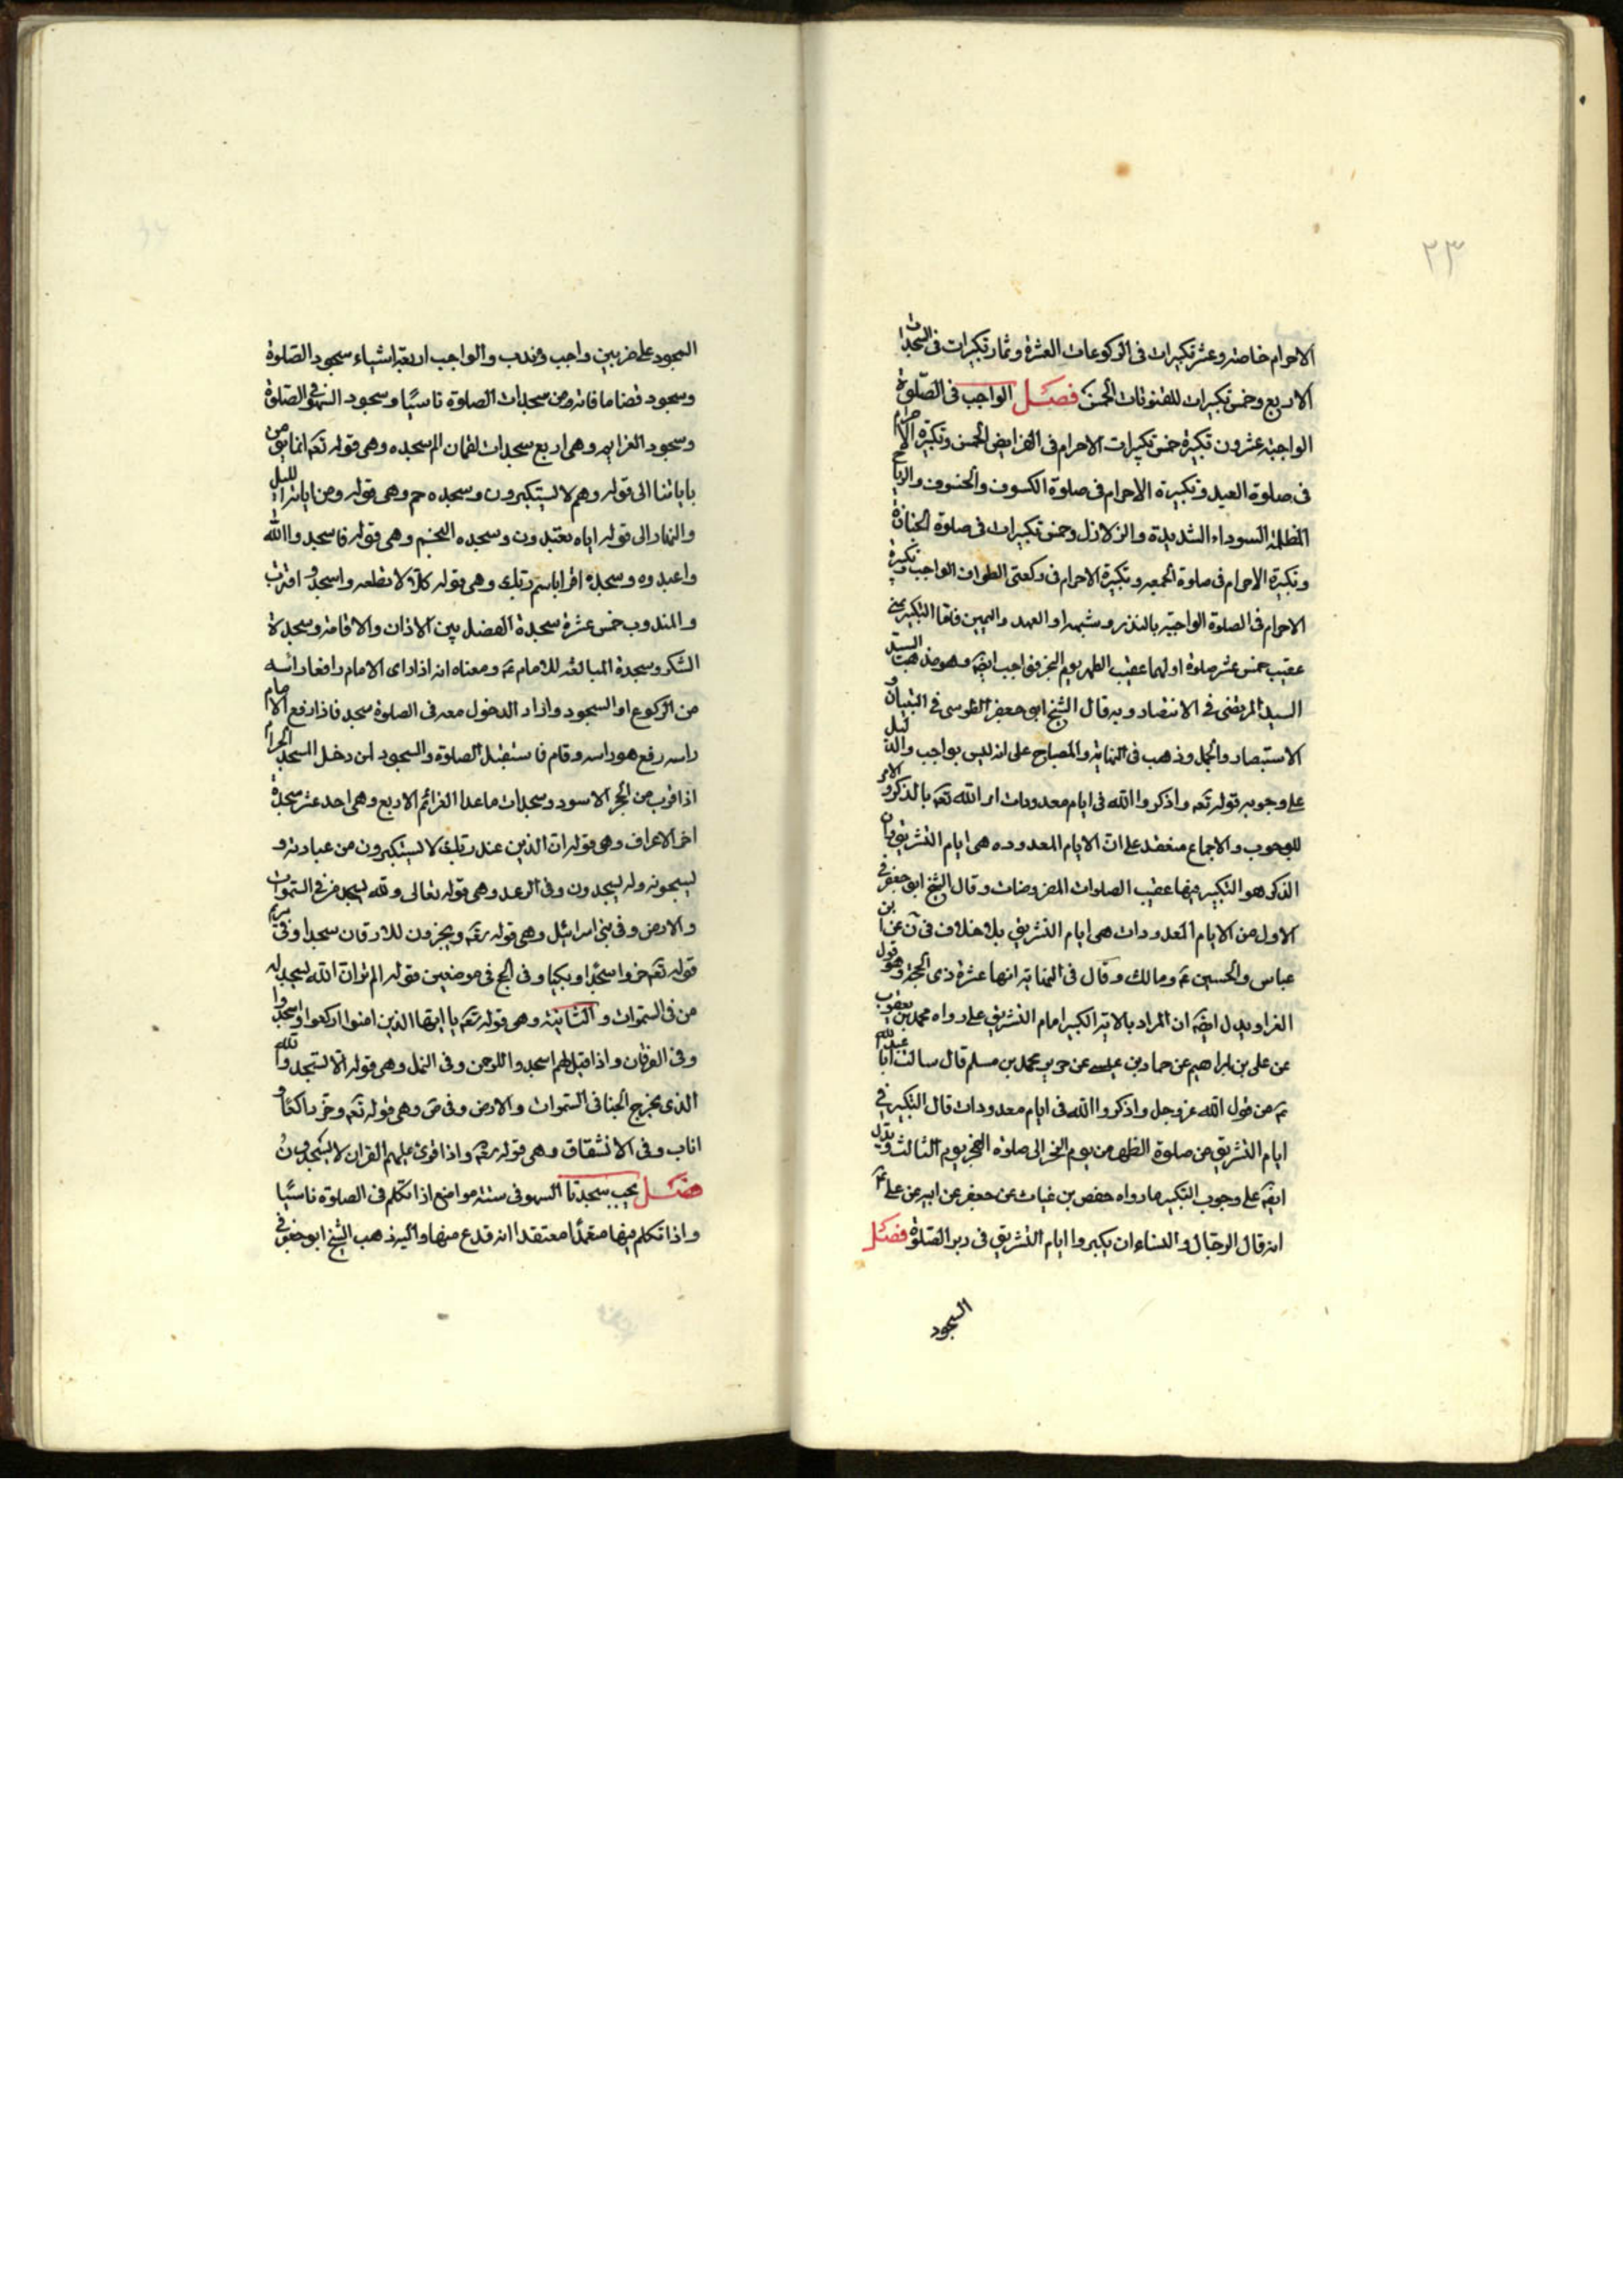 ٢٣
الاحرام خاصة وعشر تكبيرات فى الركوعات العشرة وثمان تكبيرات فى السجدات
الاربع وخمس تكبيرات للقنوتات الخمس فصل الواجب فى الصّلوة
الواجبة عشرون تكبيرة خمس تكبيرات الاحرام فى الفرايض الخمس وتكبيرة الاحرام
فى صلوة العيد وتكبيرة الاحرام فى صلوة الكسوف والخسوف والرياح
المظلمة السوداء الشديدة والزلازل وخمس تكبيرات فى صلوة الجنازة
وتكبيرة الاحرام فى صلوة الجمعه وتكبيرة الاحرام فى ركعتى الطواف الواجب وتكبيرة
الاحرام فى الصلوة الواجبة بالنذر وشبهه او العهد واليمين فاما التكبير
عقيب خمس عشر صلوة اولهما عقيب الظهر يوم النحر فواجب ايضَه وهو مذهب السيد
السيد المرتضى فى الانتصار وبه قال الشيخ ابو جعفر الطوسى فى التبيان و
الاستبصار والجمل وذهب فى النهاية والمصباح على انه ليس بواجب والدليل
على وجوبه قوله تعه واذكروا الله فى ايام معدودات امر الله تعه بالذكر والامر
للوجوب والاجماع منعقد على انّ الايام المعدوده هى ايام التشريق وان
الذكر هو التكبير فيها عقيب الصلوات المفروضات وقال الشيخ ابو جعفر فى
الاول من الايام المعدودات هى ايام التشريق بلا خلاف فى عن ابن
عباس والحسين عه ومالك وقال فى النهاية انها عشرة ذى الحجة وهو قول
الفرا ويدل ايضَه ان المراد بالاية الكبير امام التشريق على رواه محمد بن يعقوب
عن على بن ابراهيم عن حماد بن عيسى عن حريز محمد بن مسلم قال سالت ابا عبد الله
عه عن قول الله عز وجل واذكروا الله فى ايام معدودات قال التكبير فى
ايام التشريق من صلوة الظهر من يوم النحر الى صلوة الفجر يوم الثالث ويدل
ايضَه على وجوب التكبير ما رواه حفص بن غياث عن جعفر عن ابيه عن على عه
انه قال الرجال والنساء ان يكبروا ايام التشريق فى دبر الصّلوة فصل
السجود
السجود على ضربين واجب وندب والواجب اربعة اشياء سجود الصّلوة
وسجود قضا ما فاته من سجدات الصلوة ناسيًا وسجود السهو فى الصّلوة
وسجود العزايم وهى اربع سجدات لقمان الم سجده وهى قوله تعه انما يؤمن
باياتنا الى قوله وهم لا يستكبرون وسجده حم وهى قوله ومن اياته الليل
والنهار الى قوله اياه تعبدون وسجده النجم وهى قوله فاسجدوا الله
واعبدوه وسجدة اقرا باسم ربّك وهى قوله كلّا لا تطعه واسجد واقترب
والمندوب خمس عشرة سجدة الفصل بين الاذان والاقامة وسجدة
الشكر وسجدة المبالغه للامام عه ومعناه انه اذا راى الامام رافعا راسه
من الركوع او السجود واراد الدخول معه فى الصلوة سجد فاذا رفع الامام
راسه رفع هو راسه وقام فاستقبل الصلوة والسجود لمن دخل المسجد الحرام
اذا قرب من الحجر الاسود وسجدات ماعدا العزائم الاربع وهى احد عشر سجدة
اخر الاعراف وهى قوله ان الذين عند ربّك لا يستكبرون من عبادته و
يسبحونه وله يسجدون وفى الرعد وهى قوله تعالى ولله يسجد من فى السّموات
والارض وفى بنى اسرائيل وهى قوله تعه ويخرون للاذقان سجدا وفى مريم
قوله تعه خروا سجّدا وبكيا وفى الحج فى موضعين قوله الم تر انّ الله يسجد له
من فى السّموات والثانية وهى قوله تعه يا ايها الذين امنوا اركعوا واسجدوا
وفى الفرقان واذا قيل لهم اسجدوا للرحمن وفى النمل وهى قوله الّا يسجدوا لله
الذى يخرج الخبا فى السّموات والارض وفى صَ وهى قوله تعه وخرّ راكعًا و
اناب وفى الانشقاق وهى قوله تعه واذا قرئ عليهم القران لا يسجدون
فصل يجب سجدتا السهو فى ستة مواضع اذا تكلم فى الصلوة ناسيًا
واذا تكلم فيها متعمدًا معتقدا انه فرغ منها واليه ذهب الشيخ ابو جعفر فى